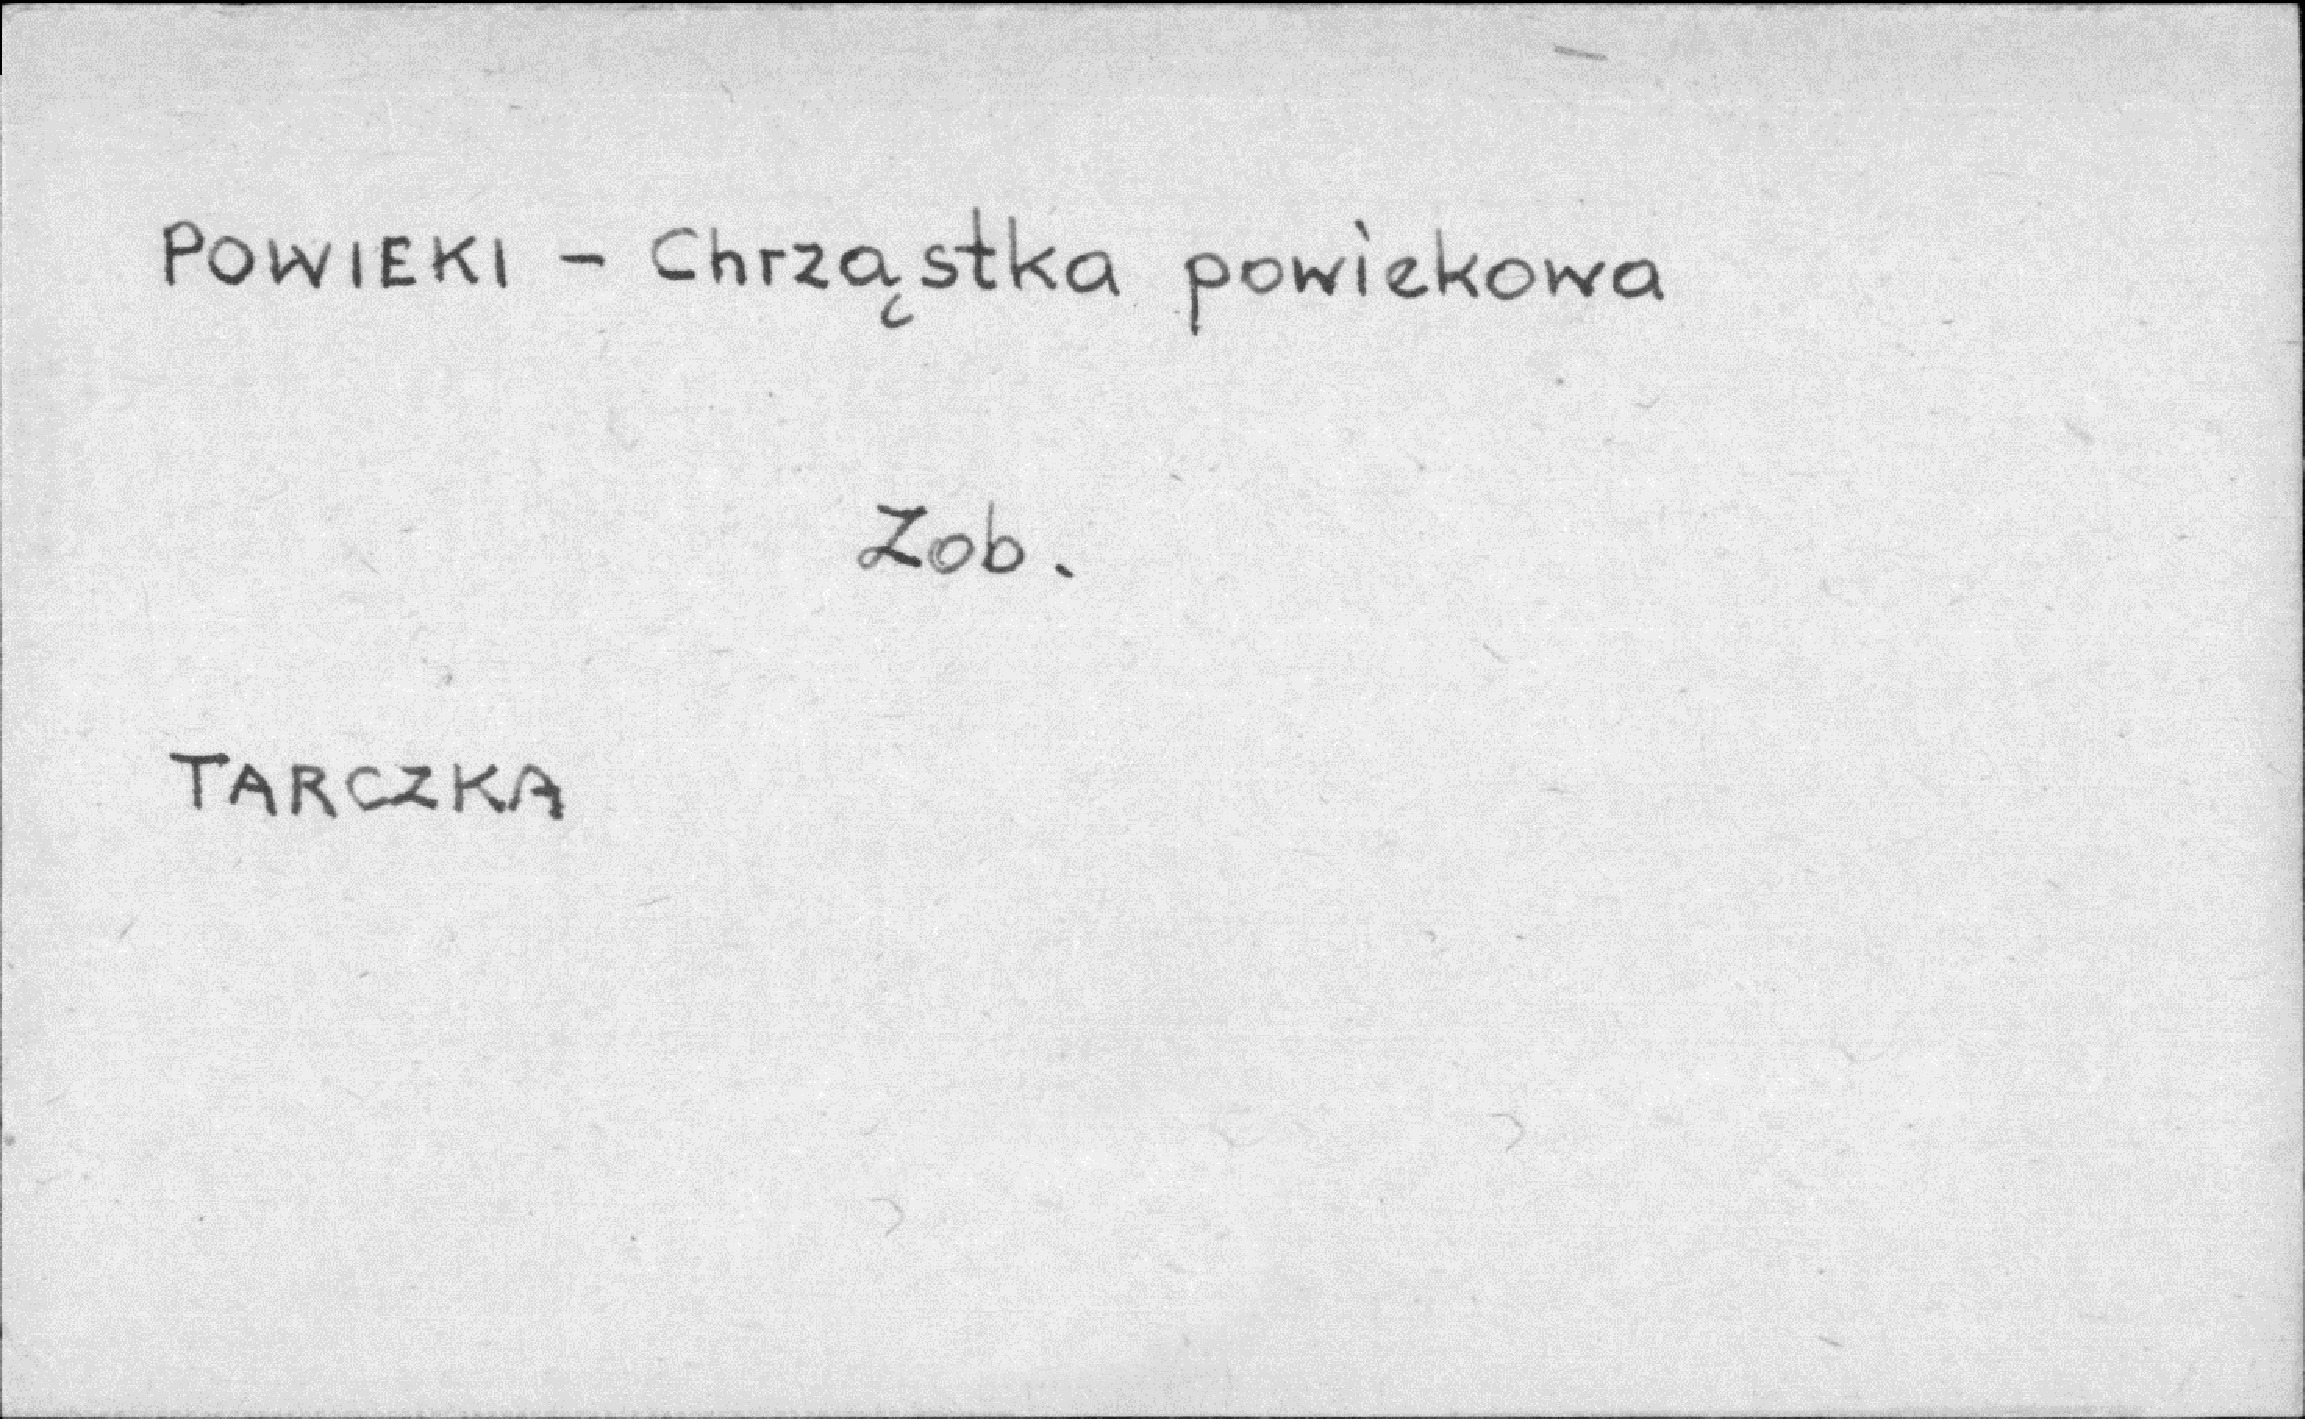 POWIEKI - Chrząstka powiekowa
Zob.
TARCZKA